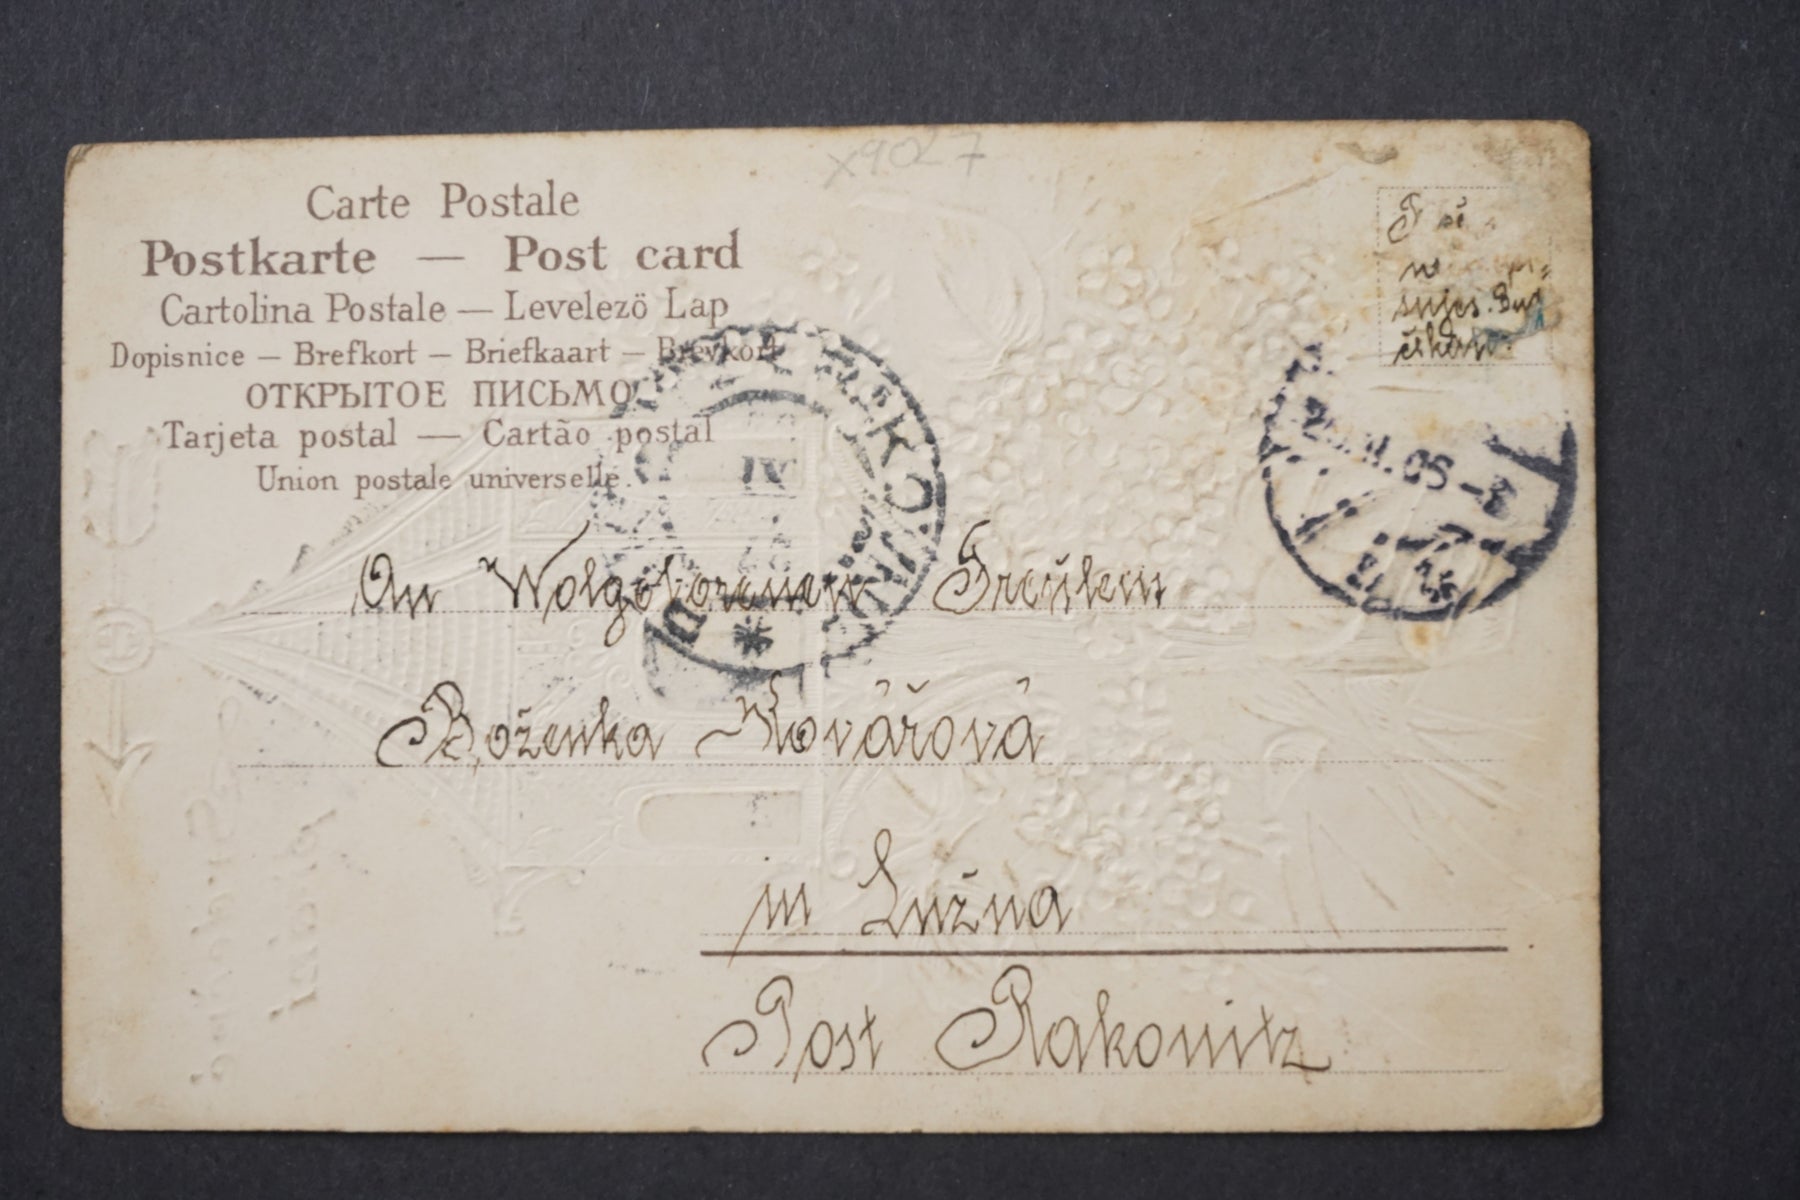 x9027
Carte Postale
Postkarte — Post card
Cartolina Postale — Levelező Lap
Dopisnice — Brefkort — Briefkaart — Brevkort
ОТКРЫТОЕ ПИСЬМО
Tarjeta postal — Cartão postal
Union postale universelle.
An Wolgeborenen Freülein
Boženka Kovářová
in Lužna
Post Rakonitz